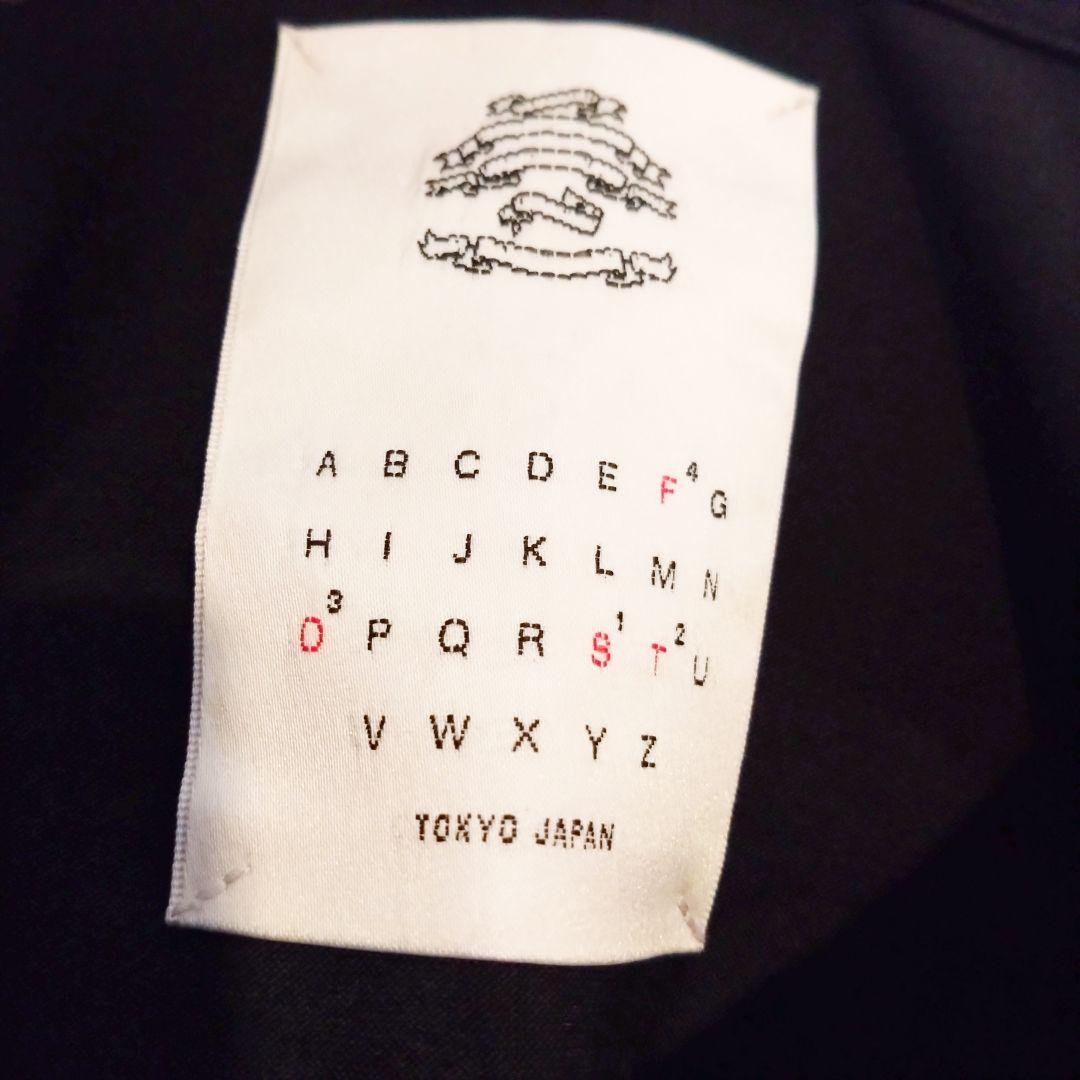 A B C D E F⁴ G
H I J K L M N
O³ P Q R S¹ T² U
V W X Y Z
TOKYO JAPAN